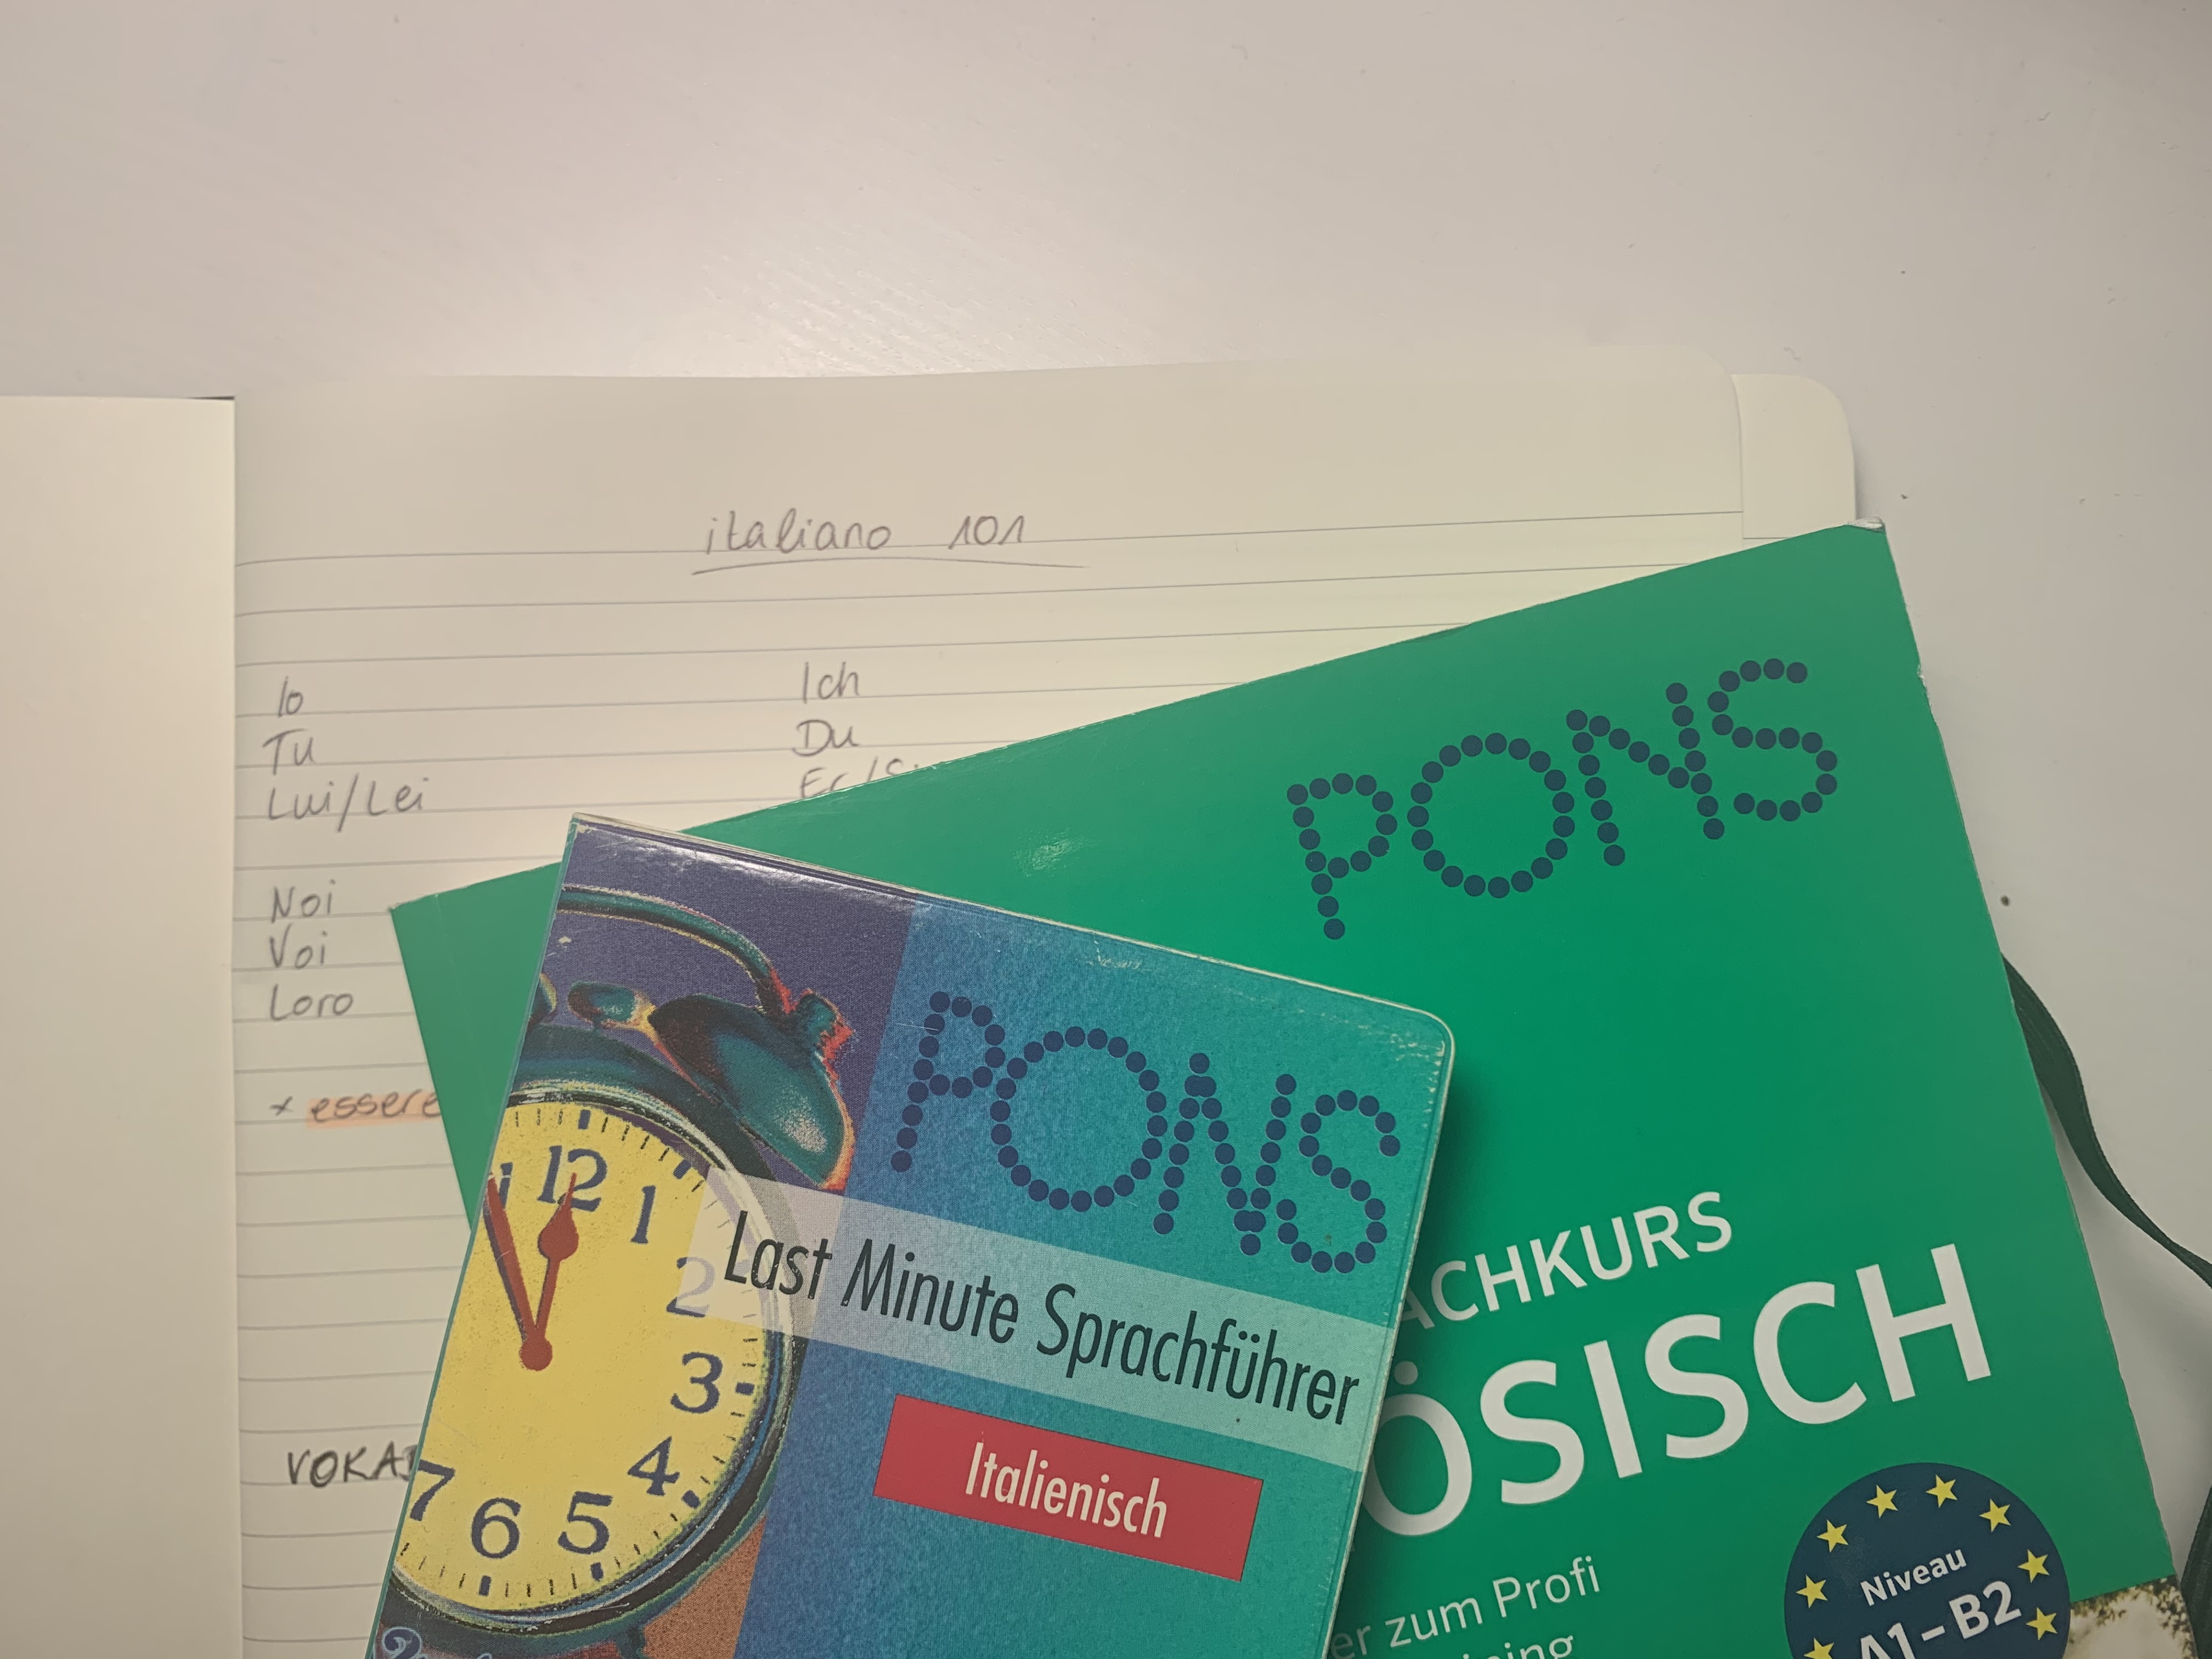 italiano 101
Io Ich
Tu Du
Lui/Lei
Noi
Voi
Loro
x essere
PONS
PONS
Last Minute Sprachführer
Italienisch
12
1
2
3
4
5
6
7
ACHKURS
ÖSISCH
er zum Profi
Niveau
A1-B2